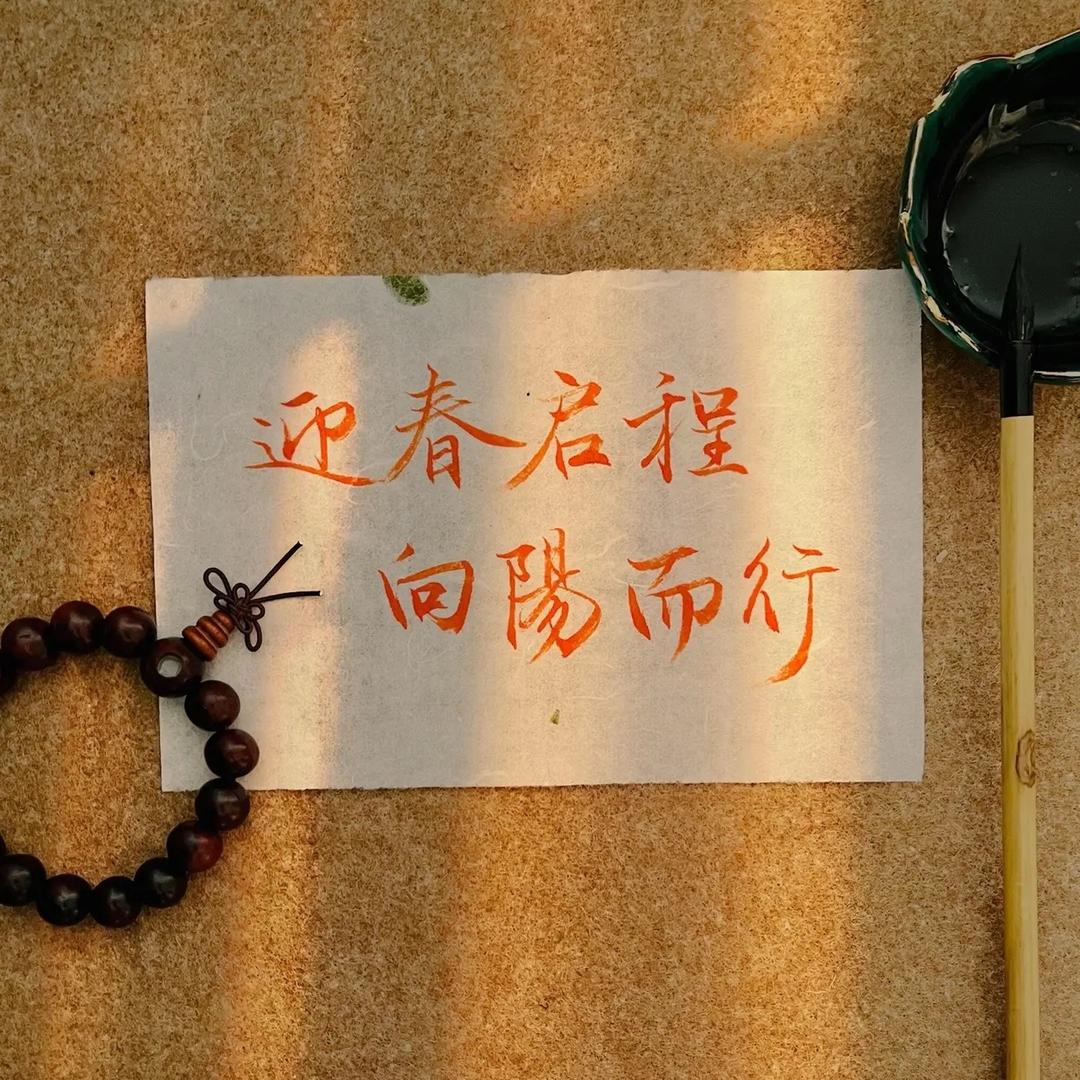 迎春启程
向陽而行